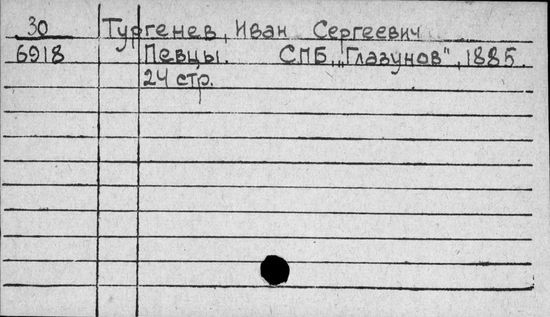 30 Тургенев, Иван Сергеевич
6918 Певцы. СПБ, „Глазунов", 1885.
24 стр.